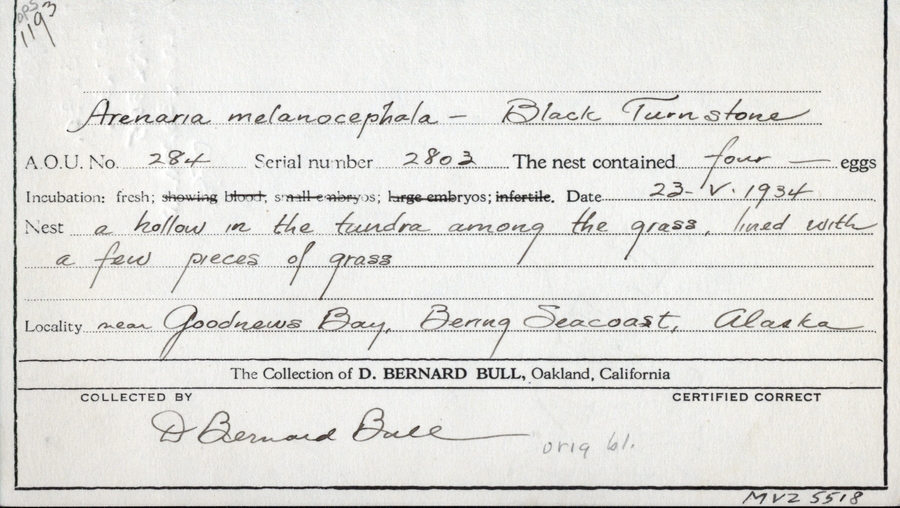 1193
Arenaria melanocephala – Black Turnstone
A.O.U. No. 284 Serial number 2803 The nest contained four — eggs
Incubation: fresh; showing blood; small embryos; large embryos; infertile. Date 23-V.1934
Nest a hollow in the tundra among the grass, lined with
a few pieces of grass
Locality near Goodnews Bay, Bering Seacoast, Alaska
The Collection of D. BERNARD BULL, Oakland, California
COLLECTED BY CERTIFIED CORRECT
D Bernard Bull
orig bl.
MVZ 5518